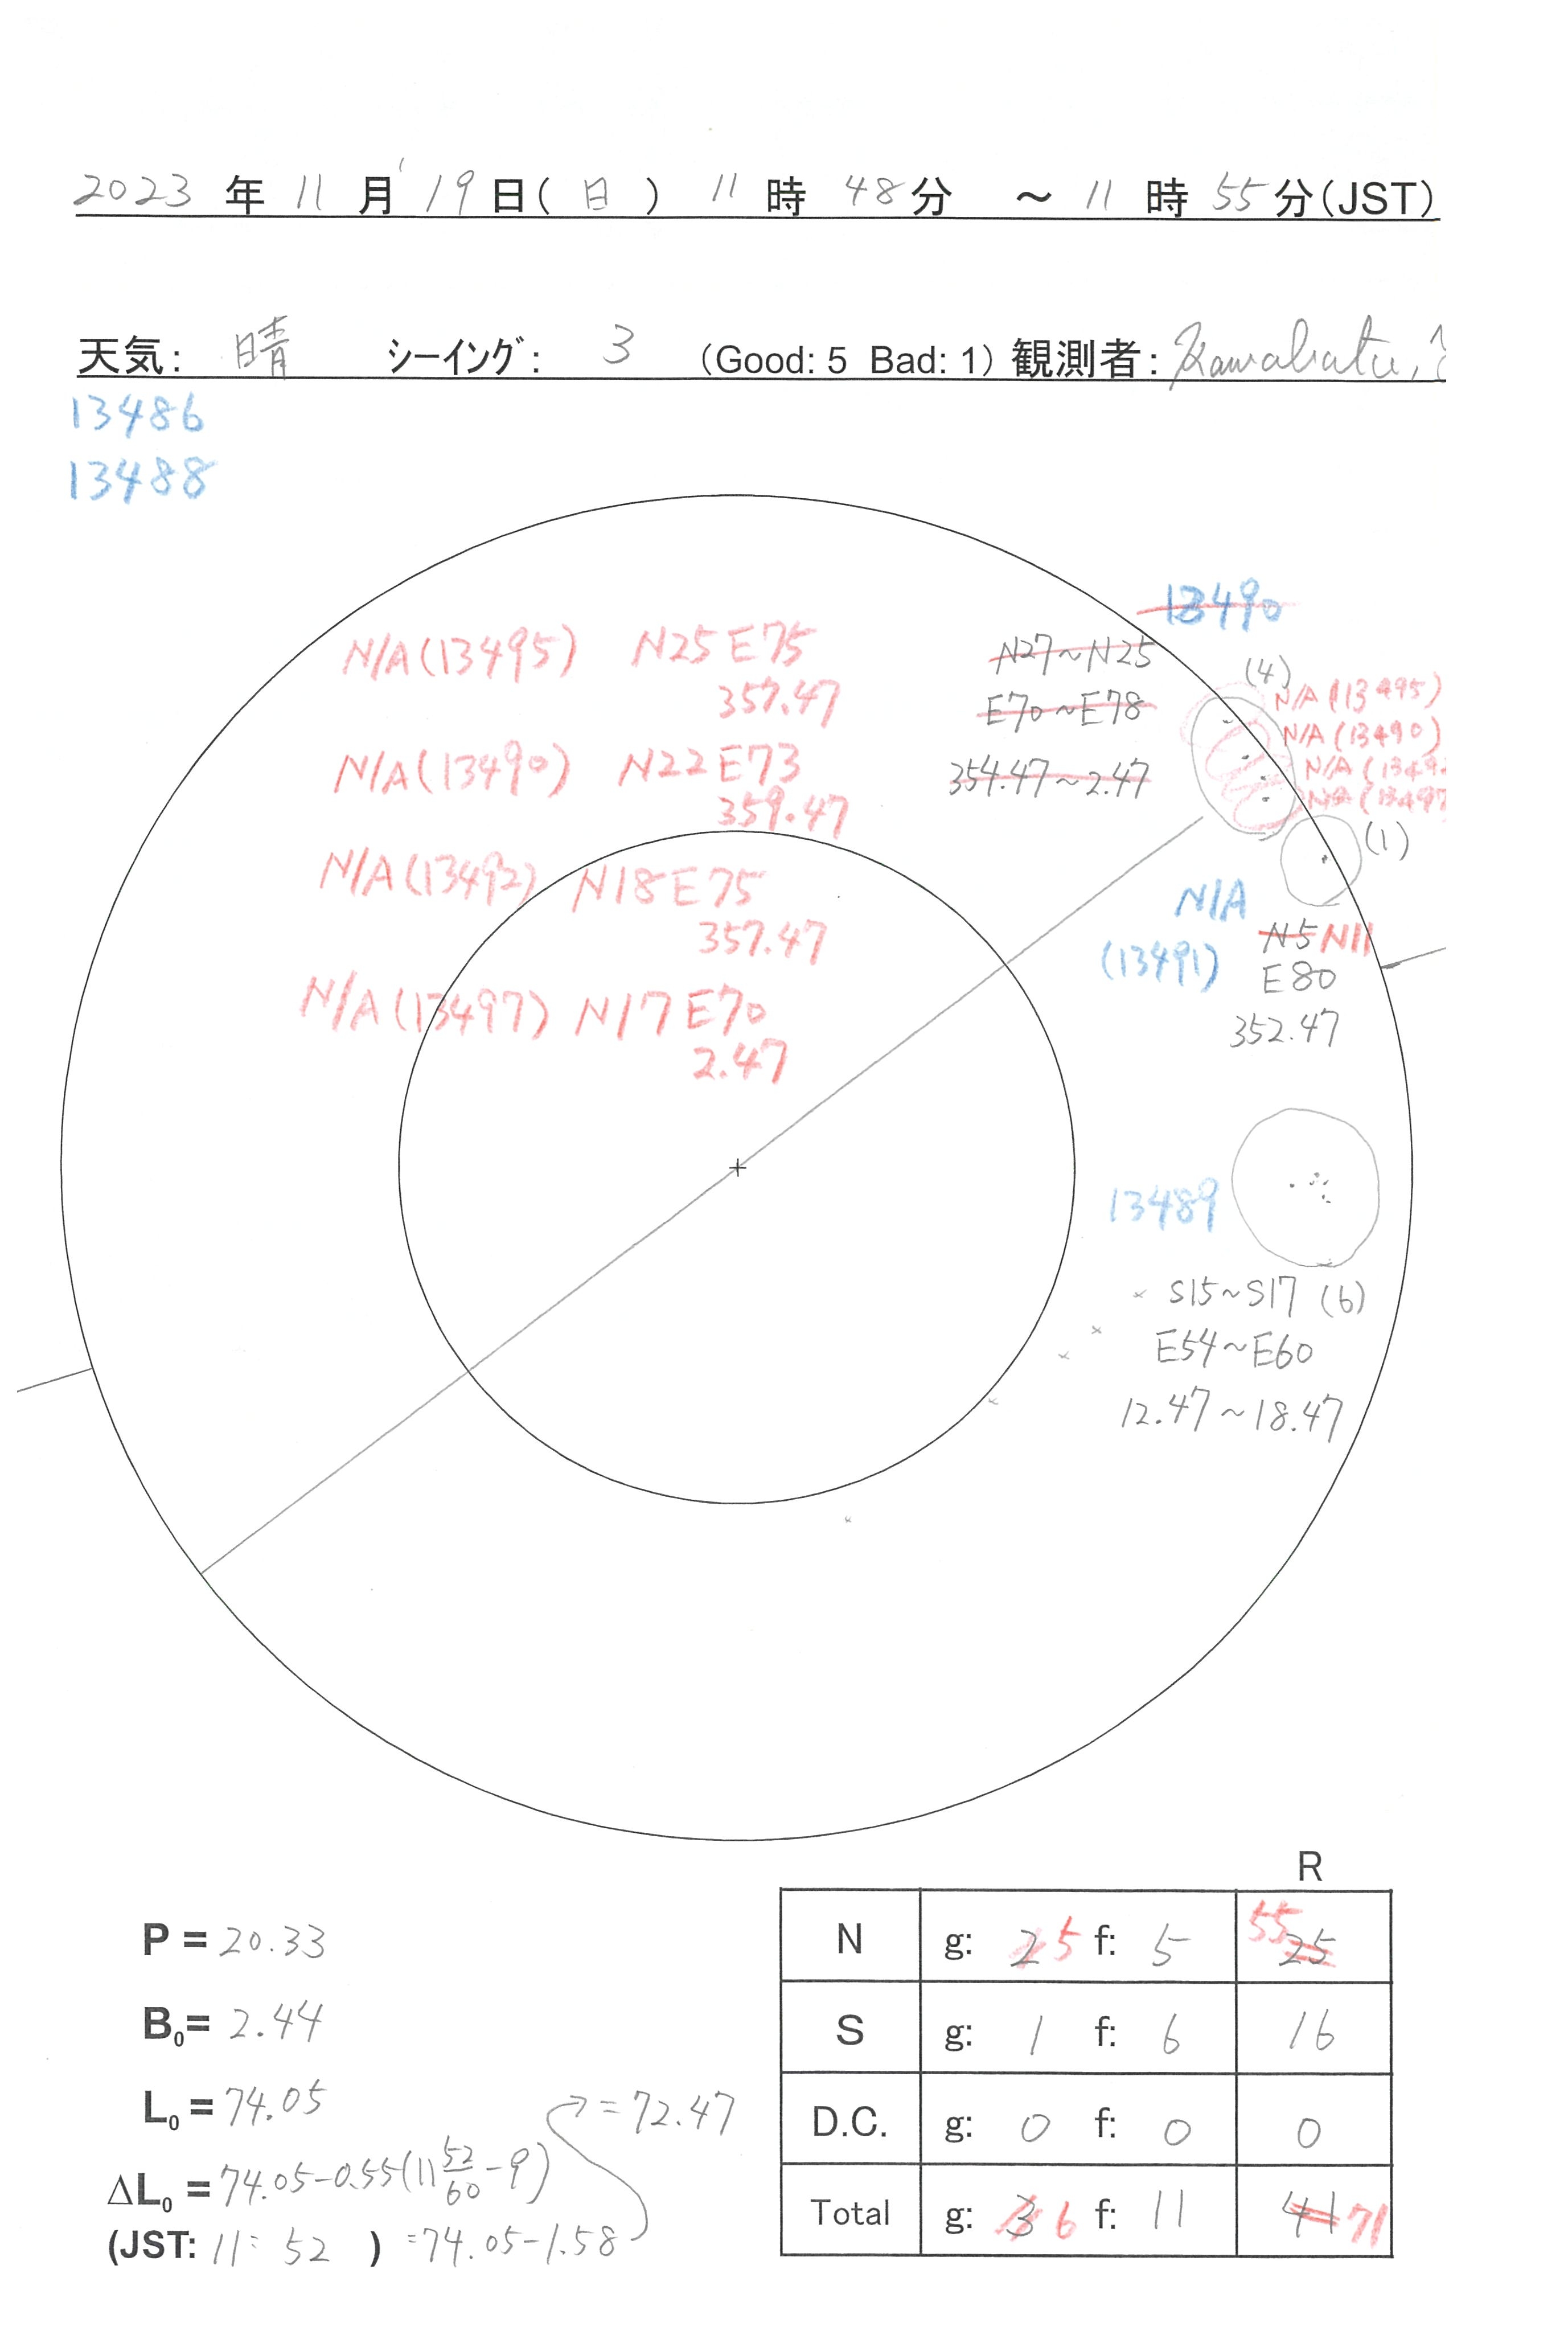 2023 年 11 月 19 日( 日 ) 11 時 48 分 ～ 11 時 55 分(JST)
天気: 晴 シーイング: 3 (Good: 5 Bad: 1) 観測者: Kawabata,
13486
13488
13490
N/A(13495) N25 E75
357.47
N27~N25
E70~E78
354.47~2.47
(4)
N/A (13495)
N/A (13490)
N/A(13490) N22 E73
359.47
(1)
N/A(13492) N18 E75
357.47
N/A
(13491)
N5 N11
E80
352.47
N/A(13497) N17 E70
2.47
13489
S15~S17 (6)
E54~E60
12.47~18.47
R
N g: 2 5 f: 5 55 25
S g: 1 f: 6 16
D.C. g: 0 f: 0 0
Total g: 3 6 f: 11 41 71
P = 20.33
B0= 2.44
L0 = 74.05
= 72.47
ΔL0 = 74.05-0.55(11 52/60 -9)
(JST: 11: 52 ) =74.05-1.58